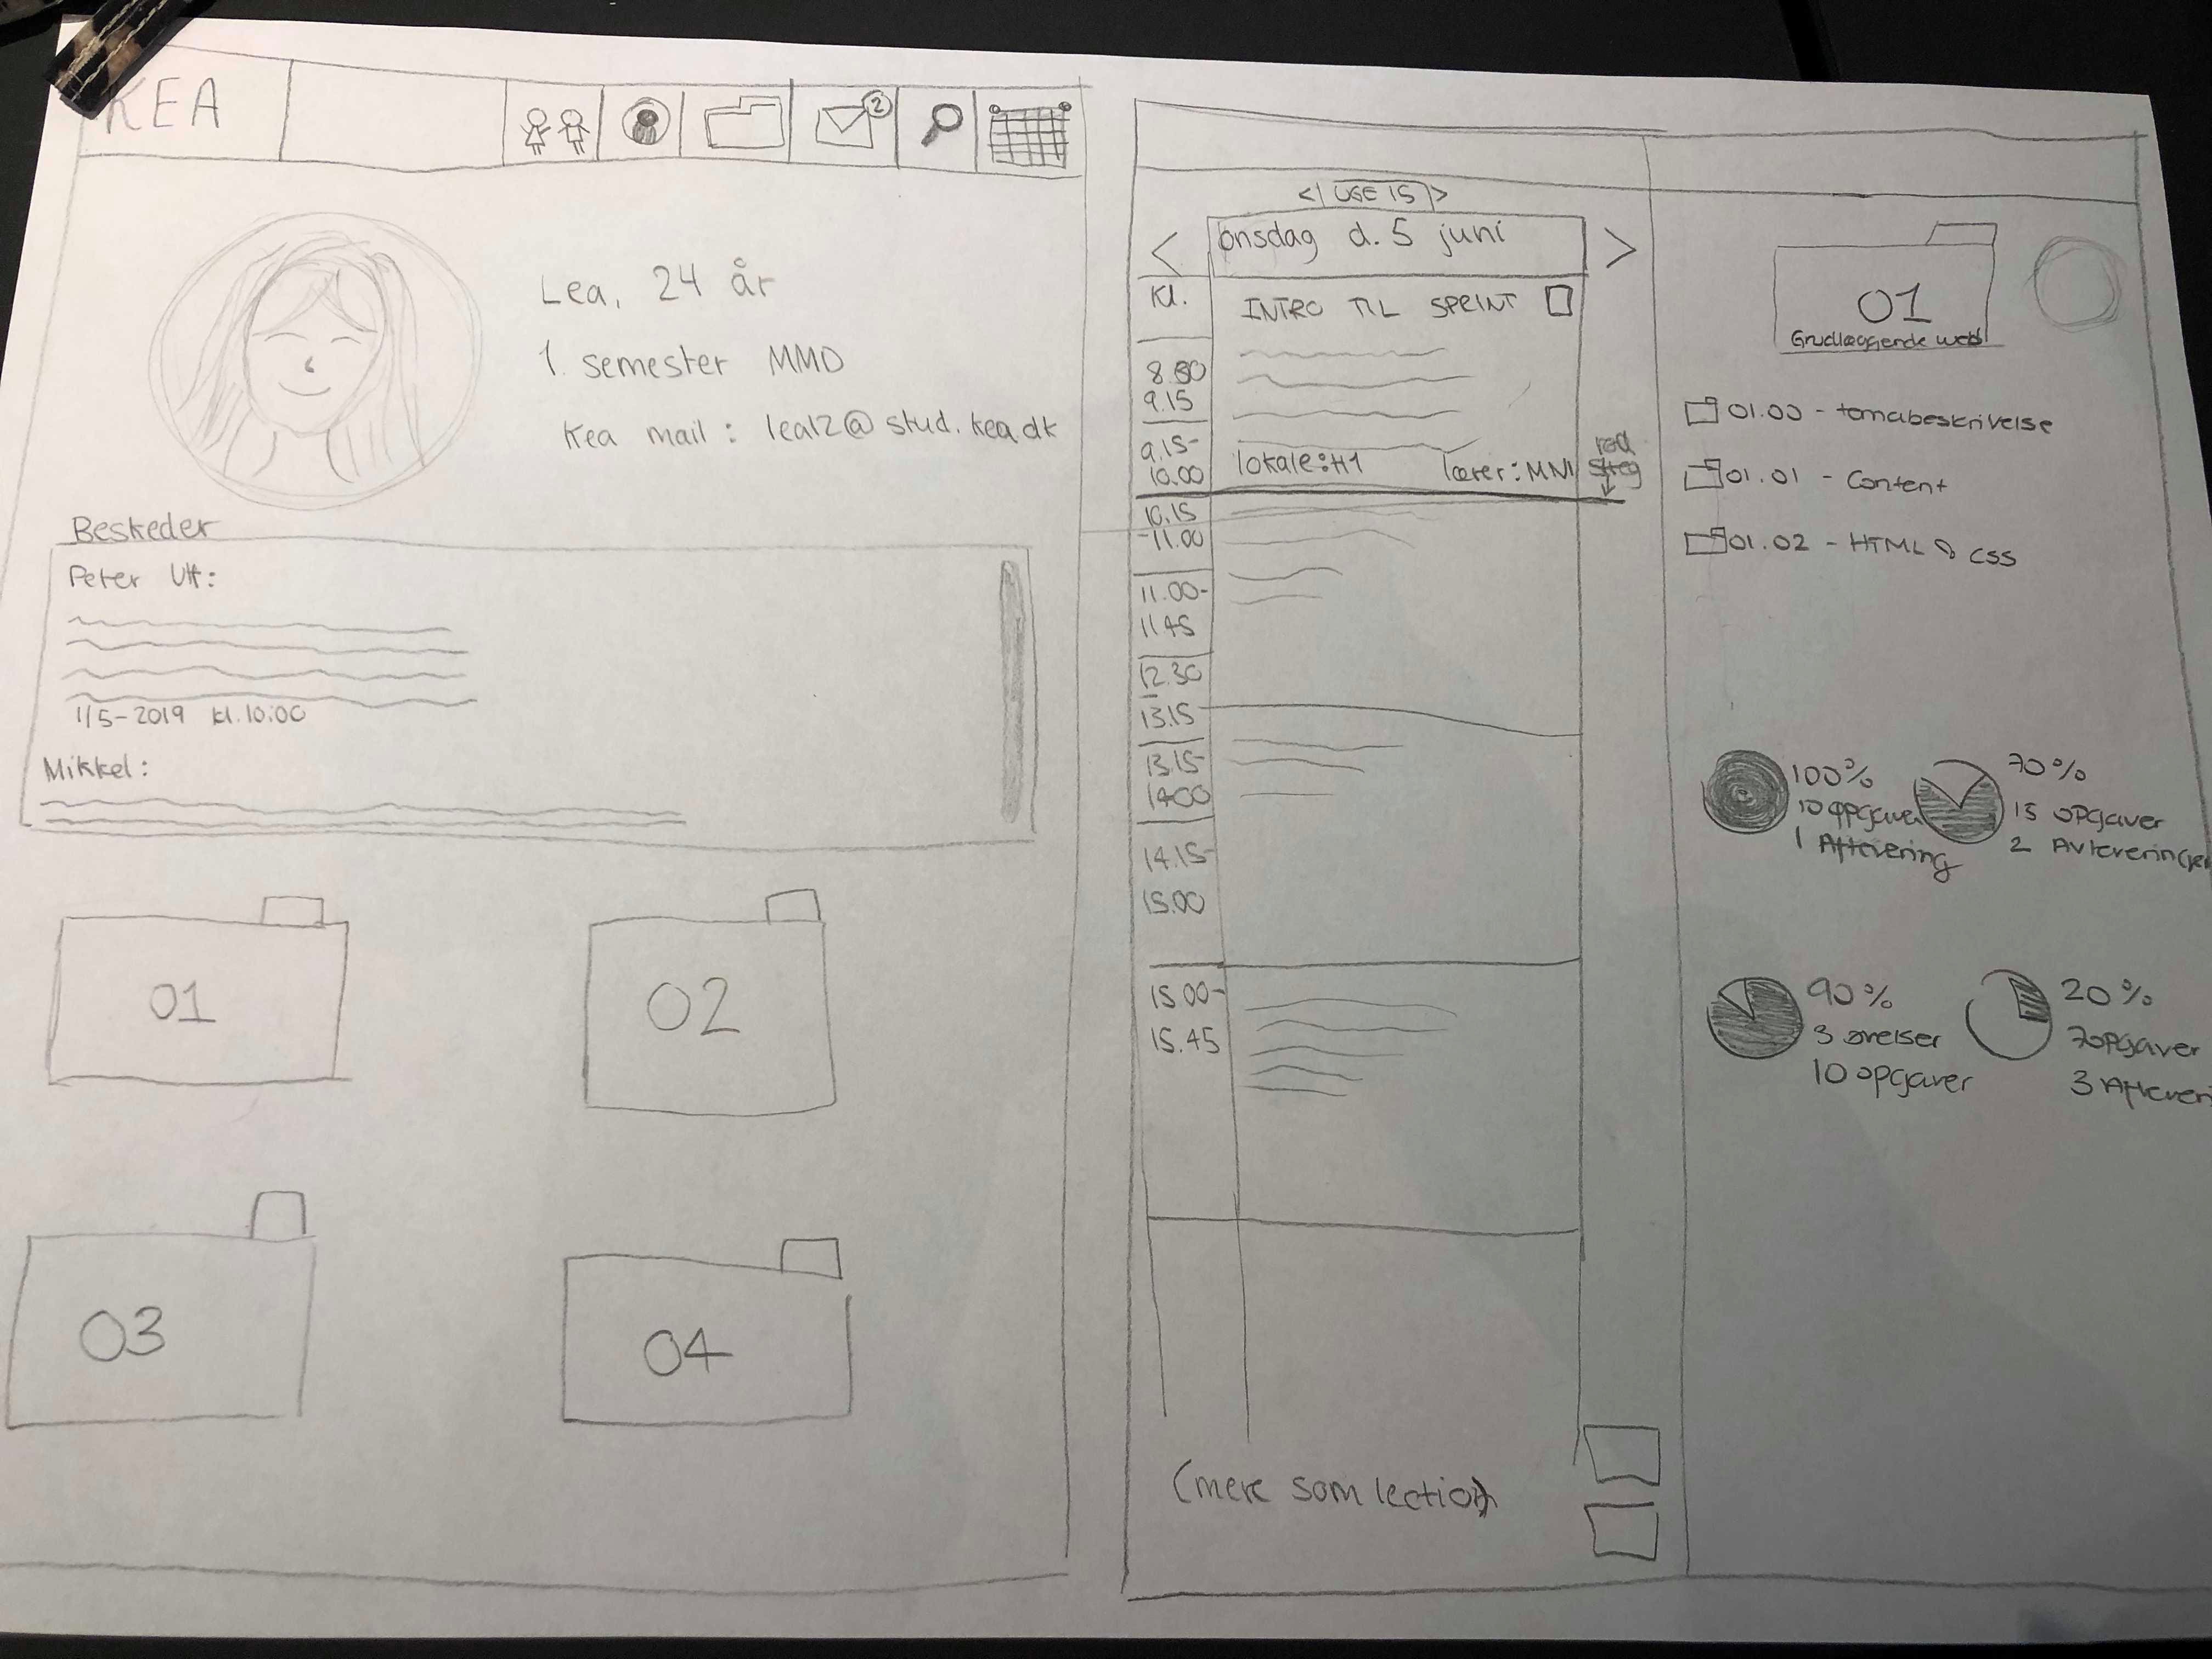 KEA
2
Lea, 24 år
1. semester MMD
Kea mail : lea12@stud.kea.dk
Beskeder
Peter Ulf:
1/5-2019 kl.10:00
Mikkel:
01
02
03
04
< UGE 15 >
< onsdag d. 5 juni >
Kl.
INTRO TIL SPRINT
8.30
9.15
9.15-
10.00
lokale:H1 lærer:MNI
rød
streg
10.15
-11.00
11.00-
11.45
12.30
-
13.15
13.15-
14.00
14.15-
15.00
15.00-
15.45
(mere som lection)
01
Grudlæggende web
01.00 - temabeskrivelse
01.01 - Content
01.02 - HTML & CSS
100%
10 opgaver
1 Aflevering
70%
15 opgaver
2 Avleveringer
90%
3 øvelser
10 opgaver
20%
7opgaver
3 Afleveri